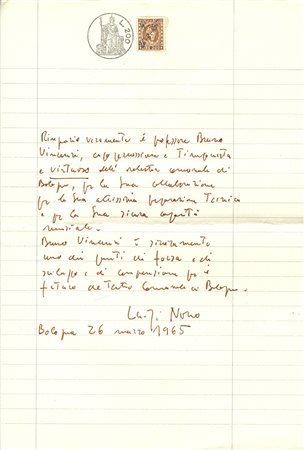 L. 200
Ringrazio veramente il professore Bruno
Vincenzi, capo percussione e Timpanista
e virtuoso dell'orchestra comunale di
Bologna, per la Sua collaborazione
per la Sua altissima preparazione Tecnica
e per la Sua sicura capacità
musicale.
Bruno Vincenzi è sicuramente
uno dei punti di forza e di
sviluppo e di comprensione per il
futuro del Teatro Comunale di Bologna.
Luigi Nono
Bologna 26 marzo 1965